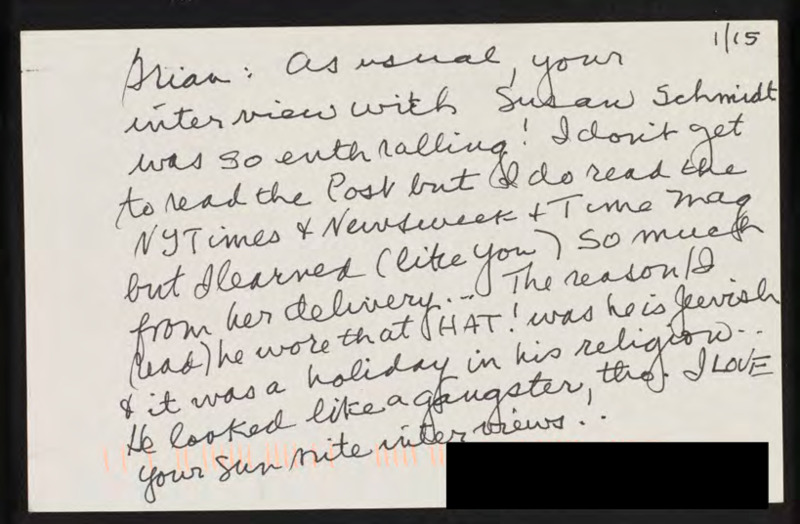 1/15
Brian: As usual, your
interview with Susan Schmidt
was so enthralling! I don't get
to read the Post but I do read the
NYTimes & Newsweek + Time Mag
but I learned (like you) so much
from her delivery... The reason I
(read) he wore that HAT! was he is Jewish
& it was a holiday in his religion...
He looked like a gangster, tho. I LOVE
your Sun nite interviews..